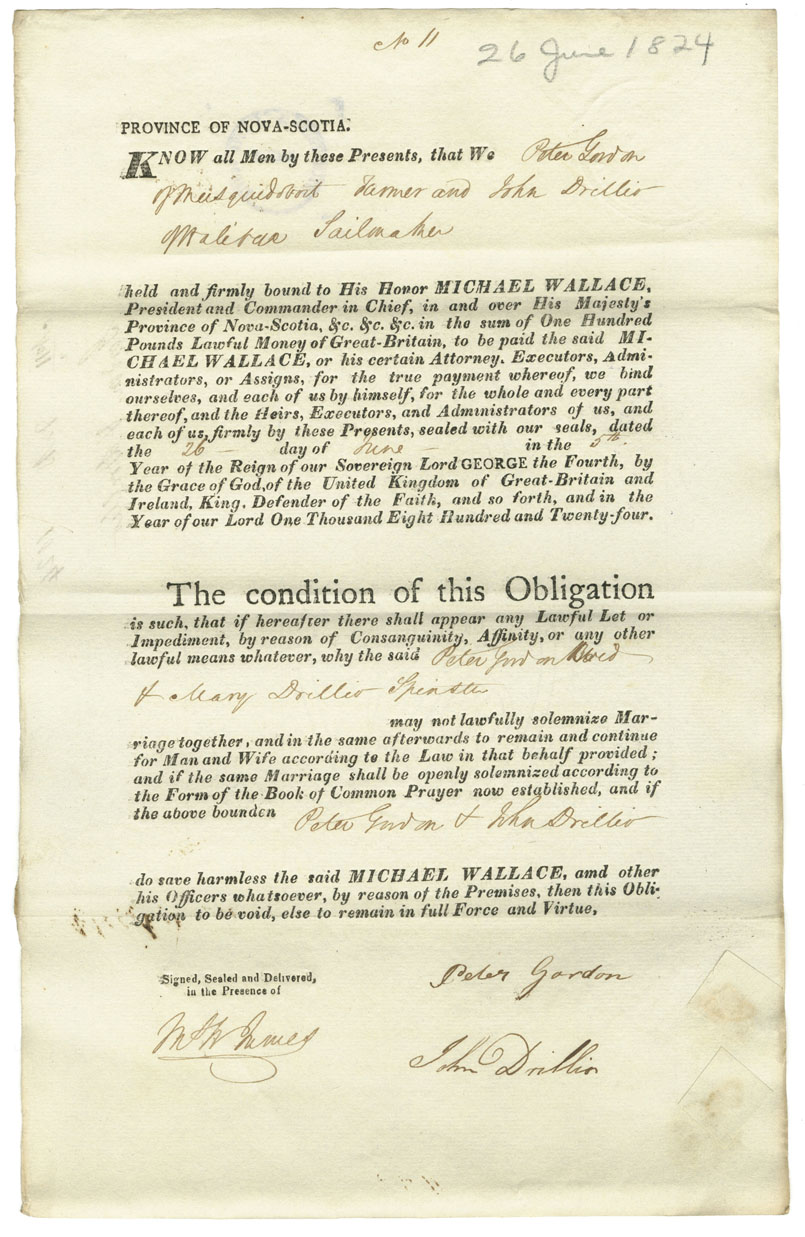 No 11
26 June 1824
PROVINCE OF NOVA-SCOTIA.
KNOW all Men by these Presents, that We Peter Gordon
of Musquidoboit Farmer and John Drillio
of Halifax Sailmaker
held and firmly bound to His Honor MICHAEL WALLACE,
President and Commander in Chief, in and over His Majesty's
Province of Nova-Scotia, &c. &c. &c. in the sum of One Hundred
Pounds Lawful Money of Great-Britain, to be paid the said MI-
CHAEL WALLACE, or his certain Attorney. Executors, Admi-
nistrators, or Assigns, for the true payment whereof, we bind
ourselves, and each of us by himself, for the whole and every part
thereof, and the Heirs, Executors, and Administrators of us, and
each of us, firmly by these Presents, sealed with our seals, dated
the 26 — day of June in the 5th.
Year of the Reign of our Sovereign Lord GEORGE the Fourth, by
the Grace of God, of the United Kingdom of Great-Britain and
Ireland, King, Defender of the Faith, and so forth, and in the
Year of our Lord One Thousand Eight Hundred and Twenty-four.
The condition of this Obligation
is such, that if hereafter there shall appear any Lawful Let or
Impediment, by reason of Consanguinity, Affinity, or any other
lawful means whatever, why the said Peter Gordon
& Mary Drillio Spinster
may not lawfully solemnize Mar-
riage together, and in the same afterwards to remain and continue
for Man and Wife according to the Law in that behalf provided;
and if the same Marriage shall be openly solemnized according to
the Form of the Book of Common Prayer now established, and if
the above bounden Peter Gordon & John Drillio
do save harmless the said MICHAEL WALLACE, amd other
his Officers whatsoever, by reason of the Premises, then this Obli-
gation to be void, else to remain in full Force and Virtue,
Signed, Sealed and Delivered,
in the Presence of
Peter Gordon
John Drillio